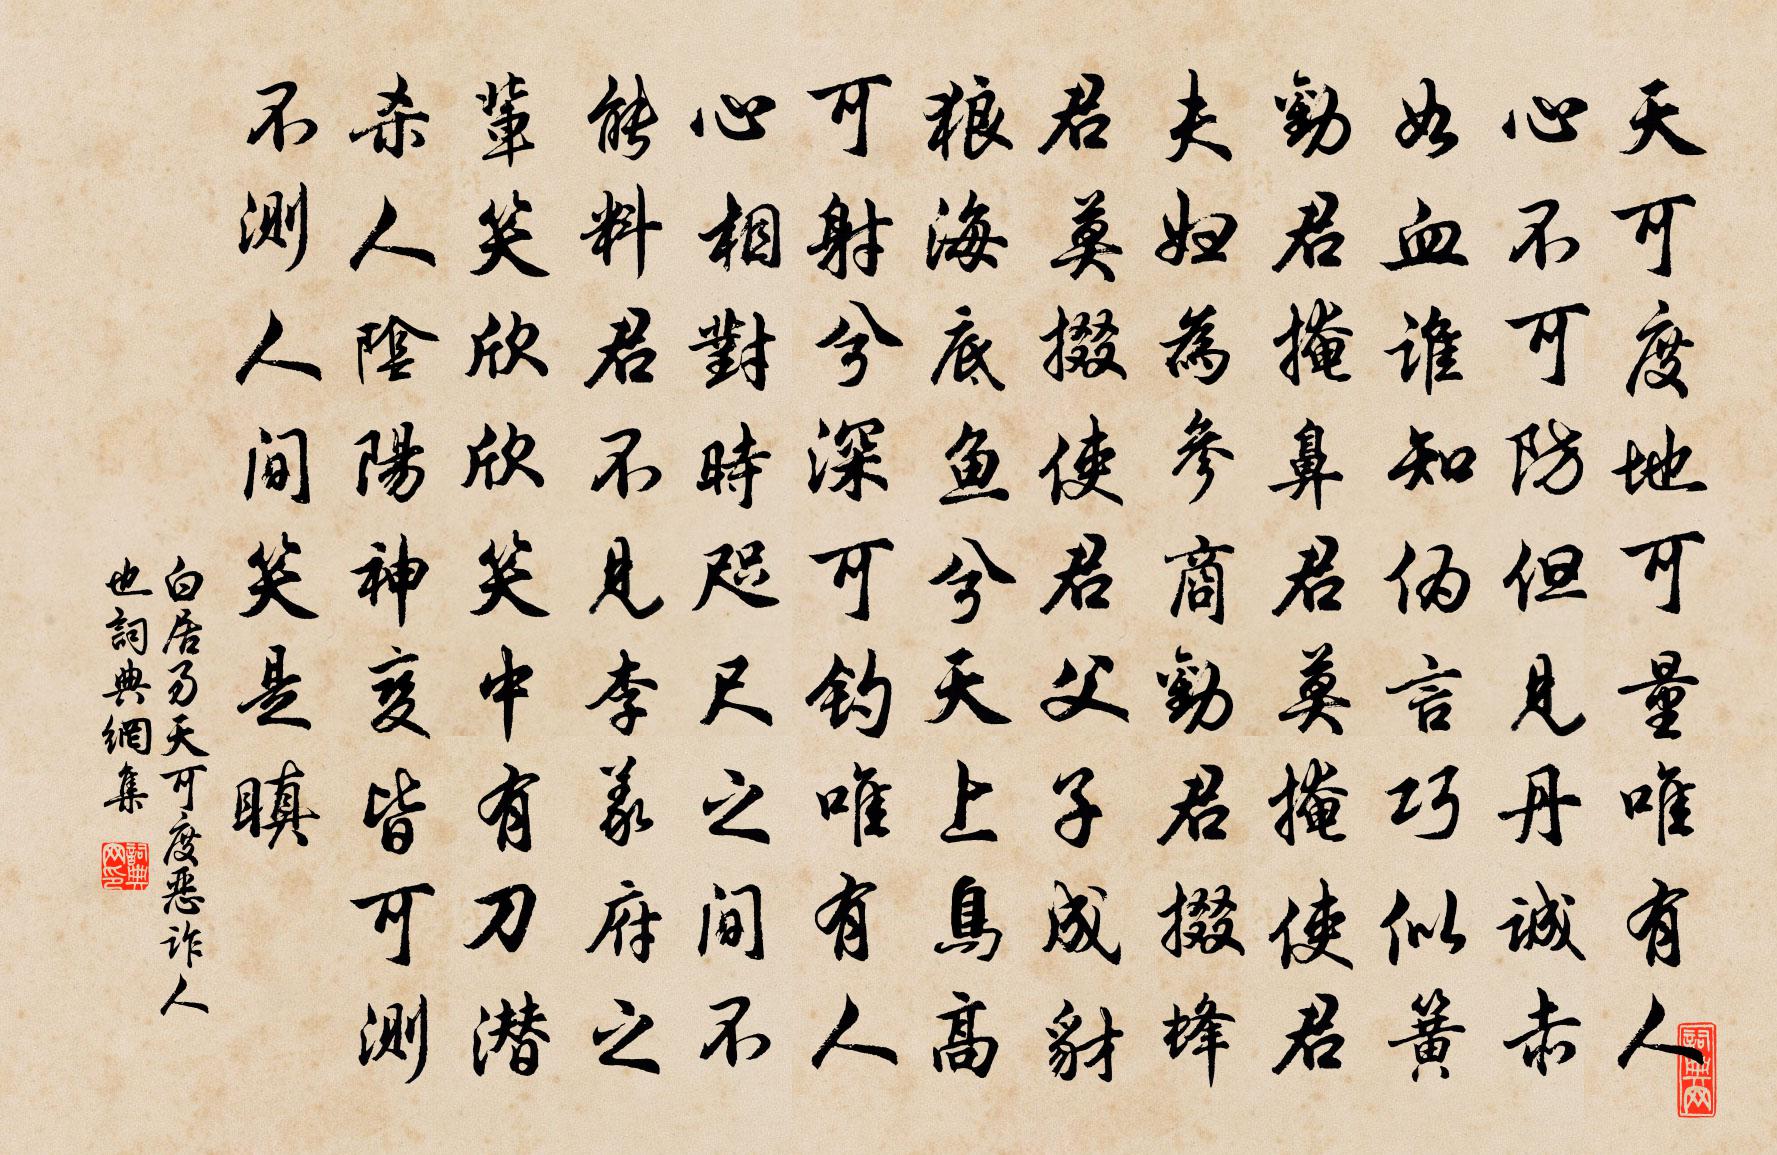 天可度地可量唯有人
心不可防但見丹誠赤
如血谁知伪言巧似簧
勸君掩鼻君莫掩使君
夫妇為参商勸君掇蜂
君莫掇使君父子成豺
狼海底魚兮天上鳥高
可射兮深可钓唯有人
心相對時咫尺之间不
能料君不見李義府之
輩笑欣欣笑中有刀潜
杀人陰陽神变皆可测
不测人间笑是瞋
白居易天可度惡诈人
也詞典網集
詞典网印
詞典网